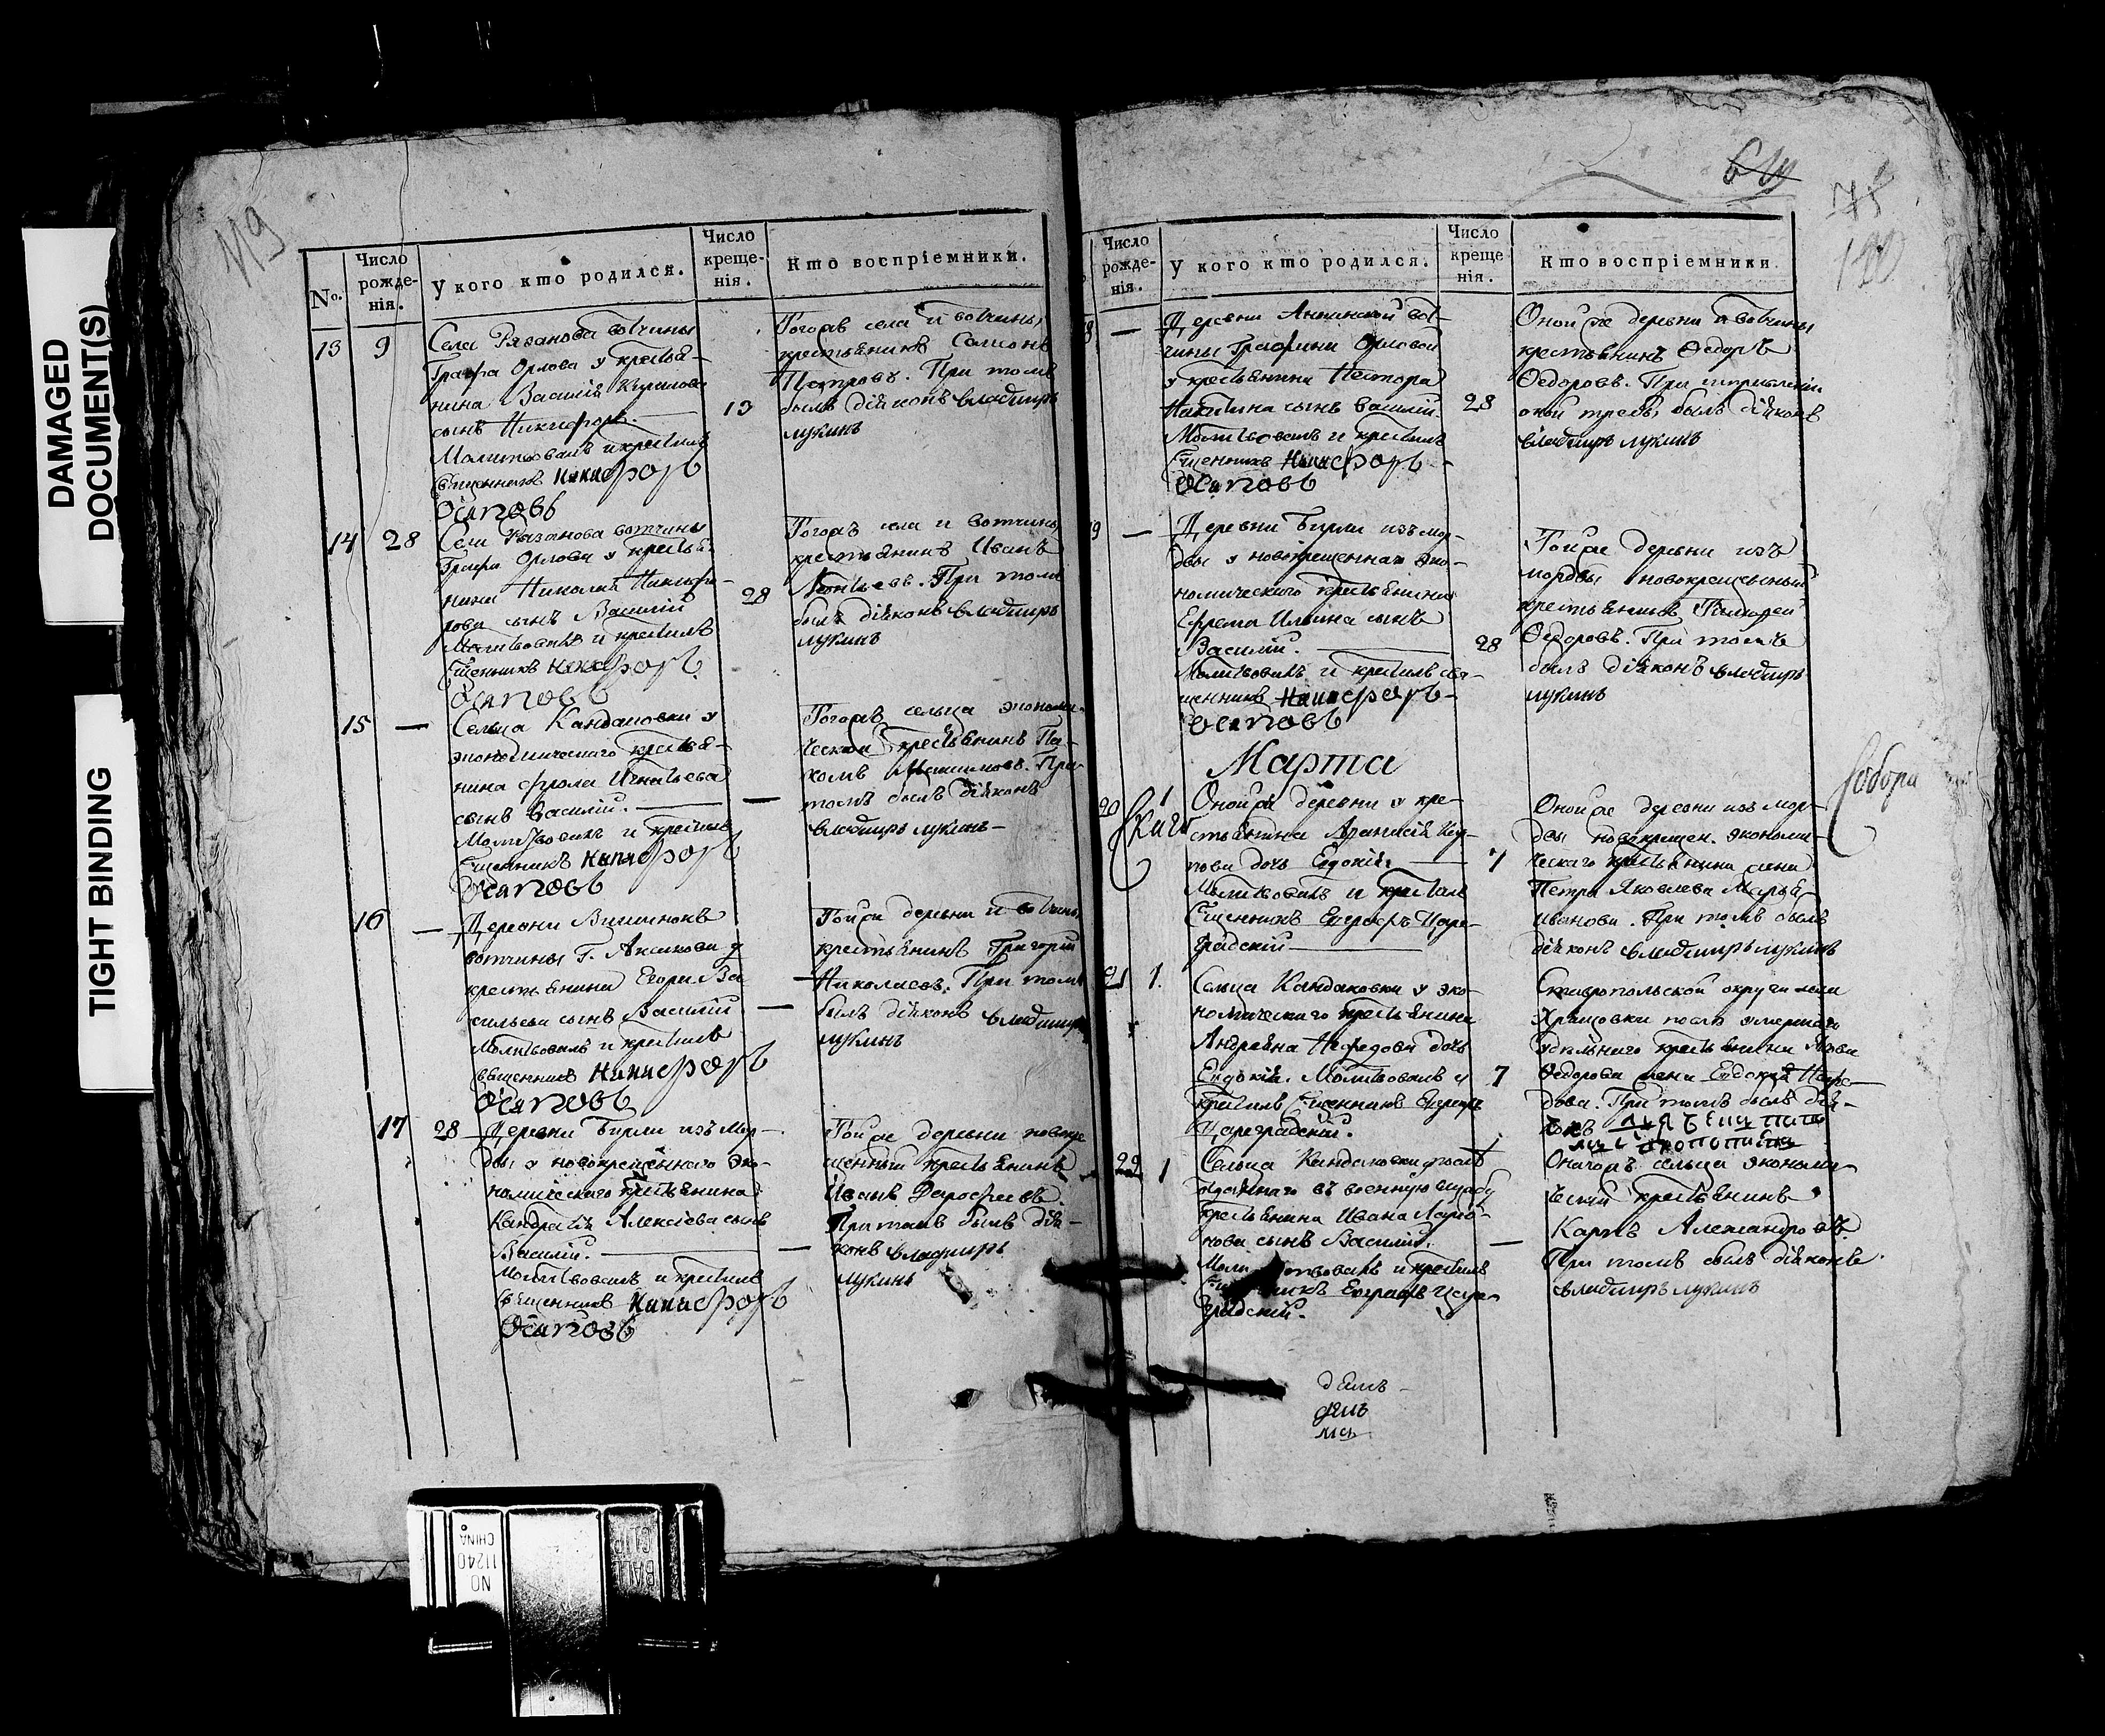 DAMAGED
DOCUMENT(S)
TIGHT BINDING
119
No.
Число
рожде-
нія.
У кого кто родился.
Число
креще-
нія.
Кто воспріемники.
13
9
Села Рязанова вотчины
Графа Орлова у крестья-
нина Василія Кирилова
сынъ Никифоръ.
Молитвовалъ и крестилъ
священникъ Никифоръ
Осиповъ
13
Тогожъ села и вотчины
крестьянинъ Семенъ
Петровъ. При томъ
былъ діаконъ владимиръ
лукинъ
14
28
Села Рязанова вотчины
Графа Орлова у крестья-
нина Николая Никифо-
рова сынъ Василій
Молитвовалъ и крестилъ
Священникъ Никифоръ
Осиповъ
28
Тогожъ села и вотчины
крестьянинъ Иванъ
Леонтьевъ. При томъ
былъ діаконъ владимиръ
лукинъ
15
—
Сельца Кандаковки у
экономическаго крестья-
нина Фрола Игнатьева
сынъ Василій.
Молитвовалъ и крестилъ
Священникъ Никифоръ
Осиповъ
—
Тогожъ сельца экономи-
ческой крестьянинъ Па-
хомъ Максимовъ. При
томъ былъ діаконъ
владимиръ лукинъ
16
—
Деревни
вотчины Г. Аксакова у
крестьянина Егора Ва
сильева сынъ Василій
Молитвовалъ и крестилъ
священникъ Никифоръ
Осиповъ
—
Тойже деревни и вотчины
крестьянинъ Григорій
Николаевъ. При томъ
былъ діаконъ владимиръ
лукинъ
17
28
Деревни Бирли изъ мор-
двы у новокрещеннаго эко-
номическаго крестьянина
Кандратія Алексіева сынъ
Василій.
Молитвовалъ и крестилъ
Священникъ Никифоръ
Осиповъ
—
Тойже деревни новокре
щенный крестьянинъ
Иванъ Дорофеевъ.
При томъ былъ діа-
конъ владимиръ
лукинъ
120
Число
рожде-
нія.
У кого кто родился.
Число
креще
нія.
Кто воспріемники.
8
—
Деревни Аннинской вот-
чины Графини Орловой
у крестьянина Нестора
Никитина сынъ Василій.
Молитвовалъ и крестилъ
Священникъ Никифоръ
Осиповъ
28
Онойже деревни и вотчины
крестьянинъ Ѳедоръ
Ѳедоровъ. При исправленіи
оной требы былъ діаконъ
владимиръ лукинъ
9
—
Деревни Бирли изъ мор-
двы у новокрещеннаго эко-
номическаго крестьянина
Ефрема Ильина сынъ
Василій.
Молитвовалъ и крестилъ свя-
щенникъ Никифоръ
Осиповъ
28
Тойже деревни изъ
мордвы новокрещенный
крестьянинъ
Ѳедоровъ. При томъ
былъ діаконъ владимиръ
лукинъ
Марта
20
1
Онойже деревни у кре-
стьянина Афанасія Кар-
пова дочь Евдокія.
Молитвовалъ и крестилъ
Священникъ Евграфъ Царе-
градскій
7
Онойже деревни изъ мор-
двы новокрещен. экономи-
ческаго крестьянина жена
Петра Яковлева Марья
Иванова. При томъ былъ
діаконъ владимиръ лукинъ
Собора
21
1.
Сельца Кандаковки у эко-
номическаго крестьянина
Андреяна Нефедова дочь
Евдокія. Молитвовалъ и
крестилъ Священникъ Евграфъ
Цареградскій.
7
Ставропольской округи села
Хрящовки послѣ умершаго
удѣльнаго крестьянина
Ѳедорова жена Евдокія Нефе-
дова. При томъ былъ діа-
конъ
22
1
Сельца Кандаковки послѣ
отданнаго въ военную службу
крестьянина Ивана Ларіо-
нова сынъ Василій.
Молитвовалъ и крестилъ
Священникъ Евграфъ Царе-
градскій.
—
Оногожъ сельца экономи-
ческій крестьянинъ
Карпъ Александровъ.
При томъ былъ діаконъ
владимиръ лукинъ
NO
11240
CHINA
BALL
CLIP